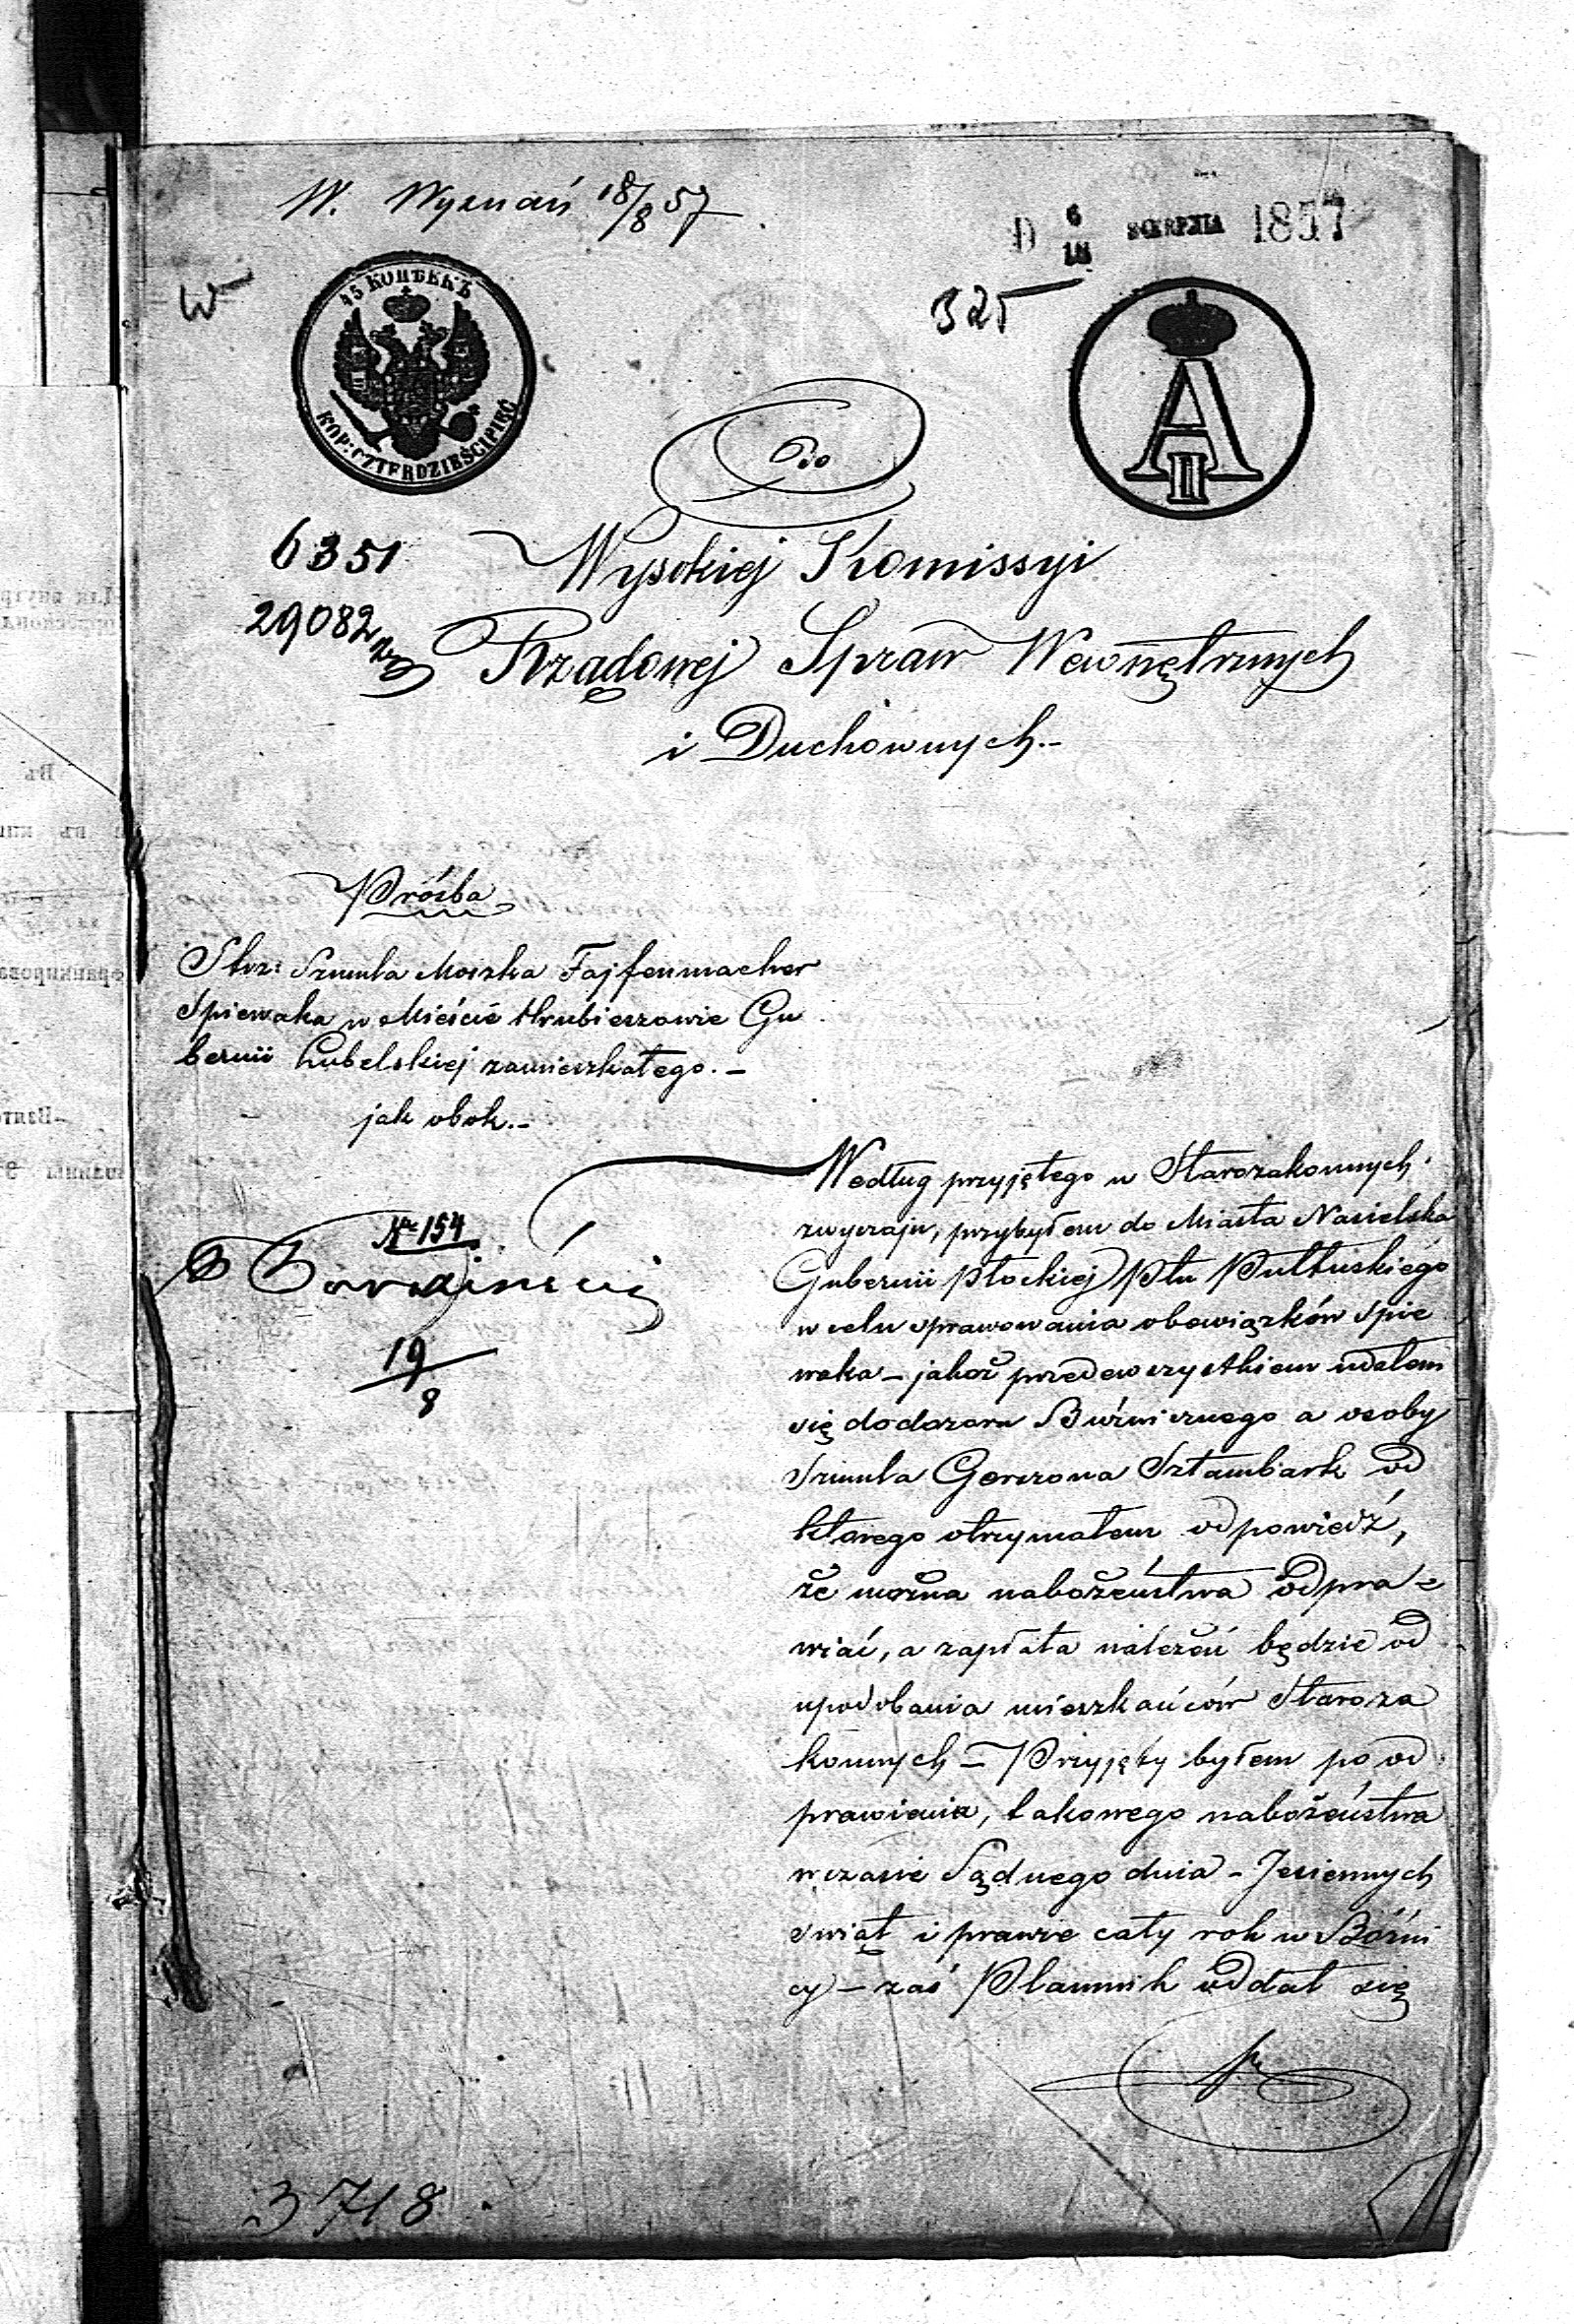 W. Wyznań 18/8 57
D 6/18 SIERPNIA 1857
325
45 КОПѢЕКЪ
KOP: CZTERDZIEŚCI PIĘĆ
A II
Do
6351
Wysokiej Komissyi
29082
Rządowej Spraw Wewnętrznych
i Duchownych.-
Prośba
Stoz: Szmula Moszka Fajfenmacher
Spiewaka w Mieście Hrubieszowie Gu
bernii Lubelskiej zamieszkałego.-
jak obok.-
Według przyjętego u Starozakonnych
zwyczaju, przybyłem do Miasta Nasielska
Gubernii Płockiej Ptu Pułtuskiego
w celu sprawowania obowiązków spie
waka - jakoż przedewszystkiem udałem
się do dozoru Bużniczego a osoby
Szmula Gerszona Sztambark od
którego otrzymałem odpowiedź,
że można nabożeństwa odpra=
wiać, a zapłata należeć będzie od
upodobania mieszkańców Staroza
konnych - Przyjęty byłem po od
prawieniu, takowego nabożeństwa
w czasie Sądnego dnia - Jesiennych
świąt i prawie cały rok w Bóżni
cy - zaś Plannik oddał się
№ 154
19/8
3718